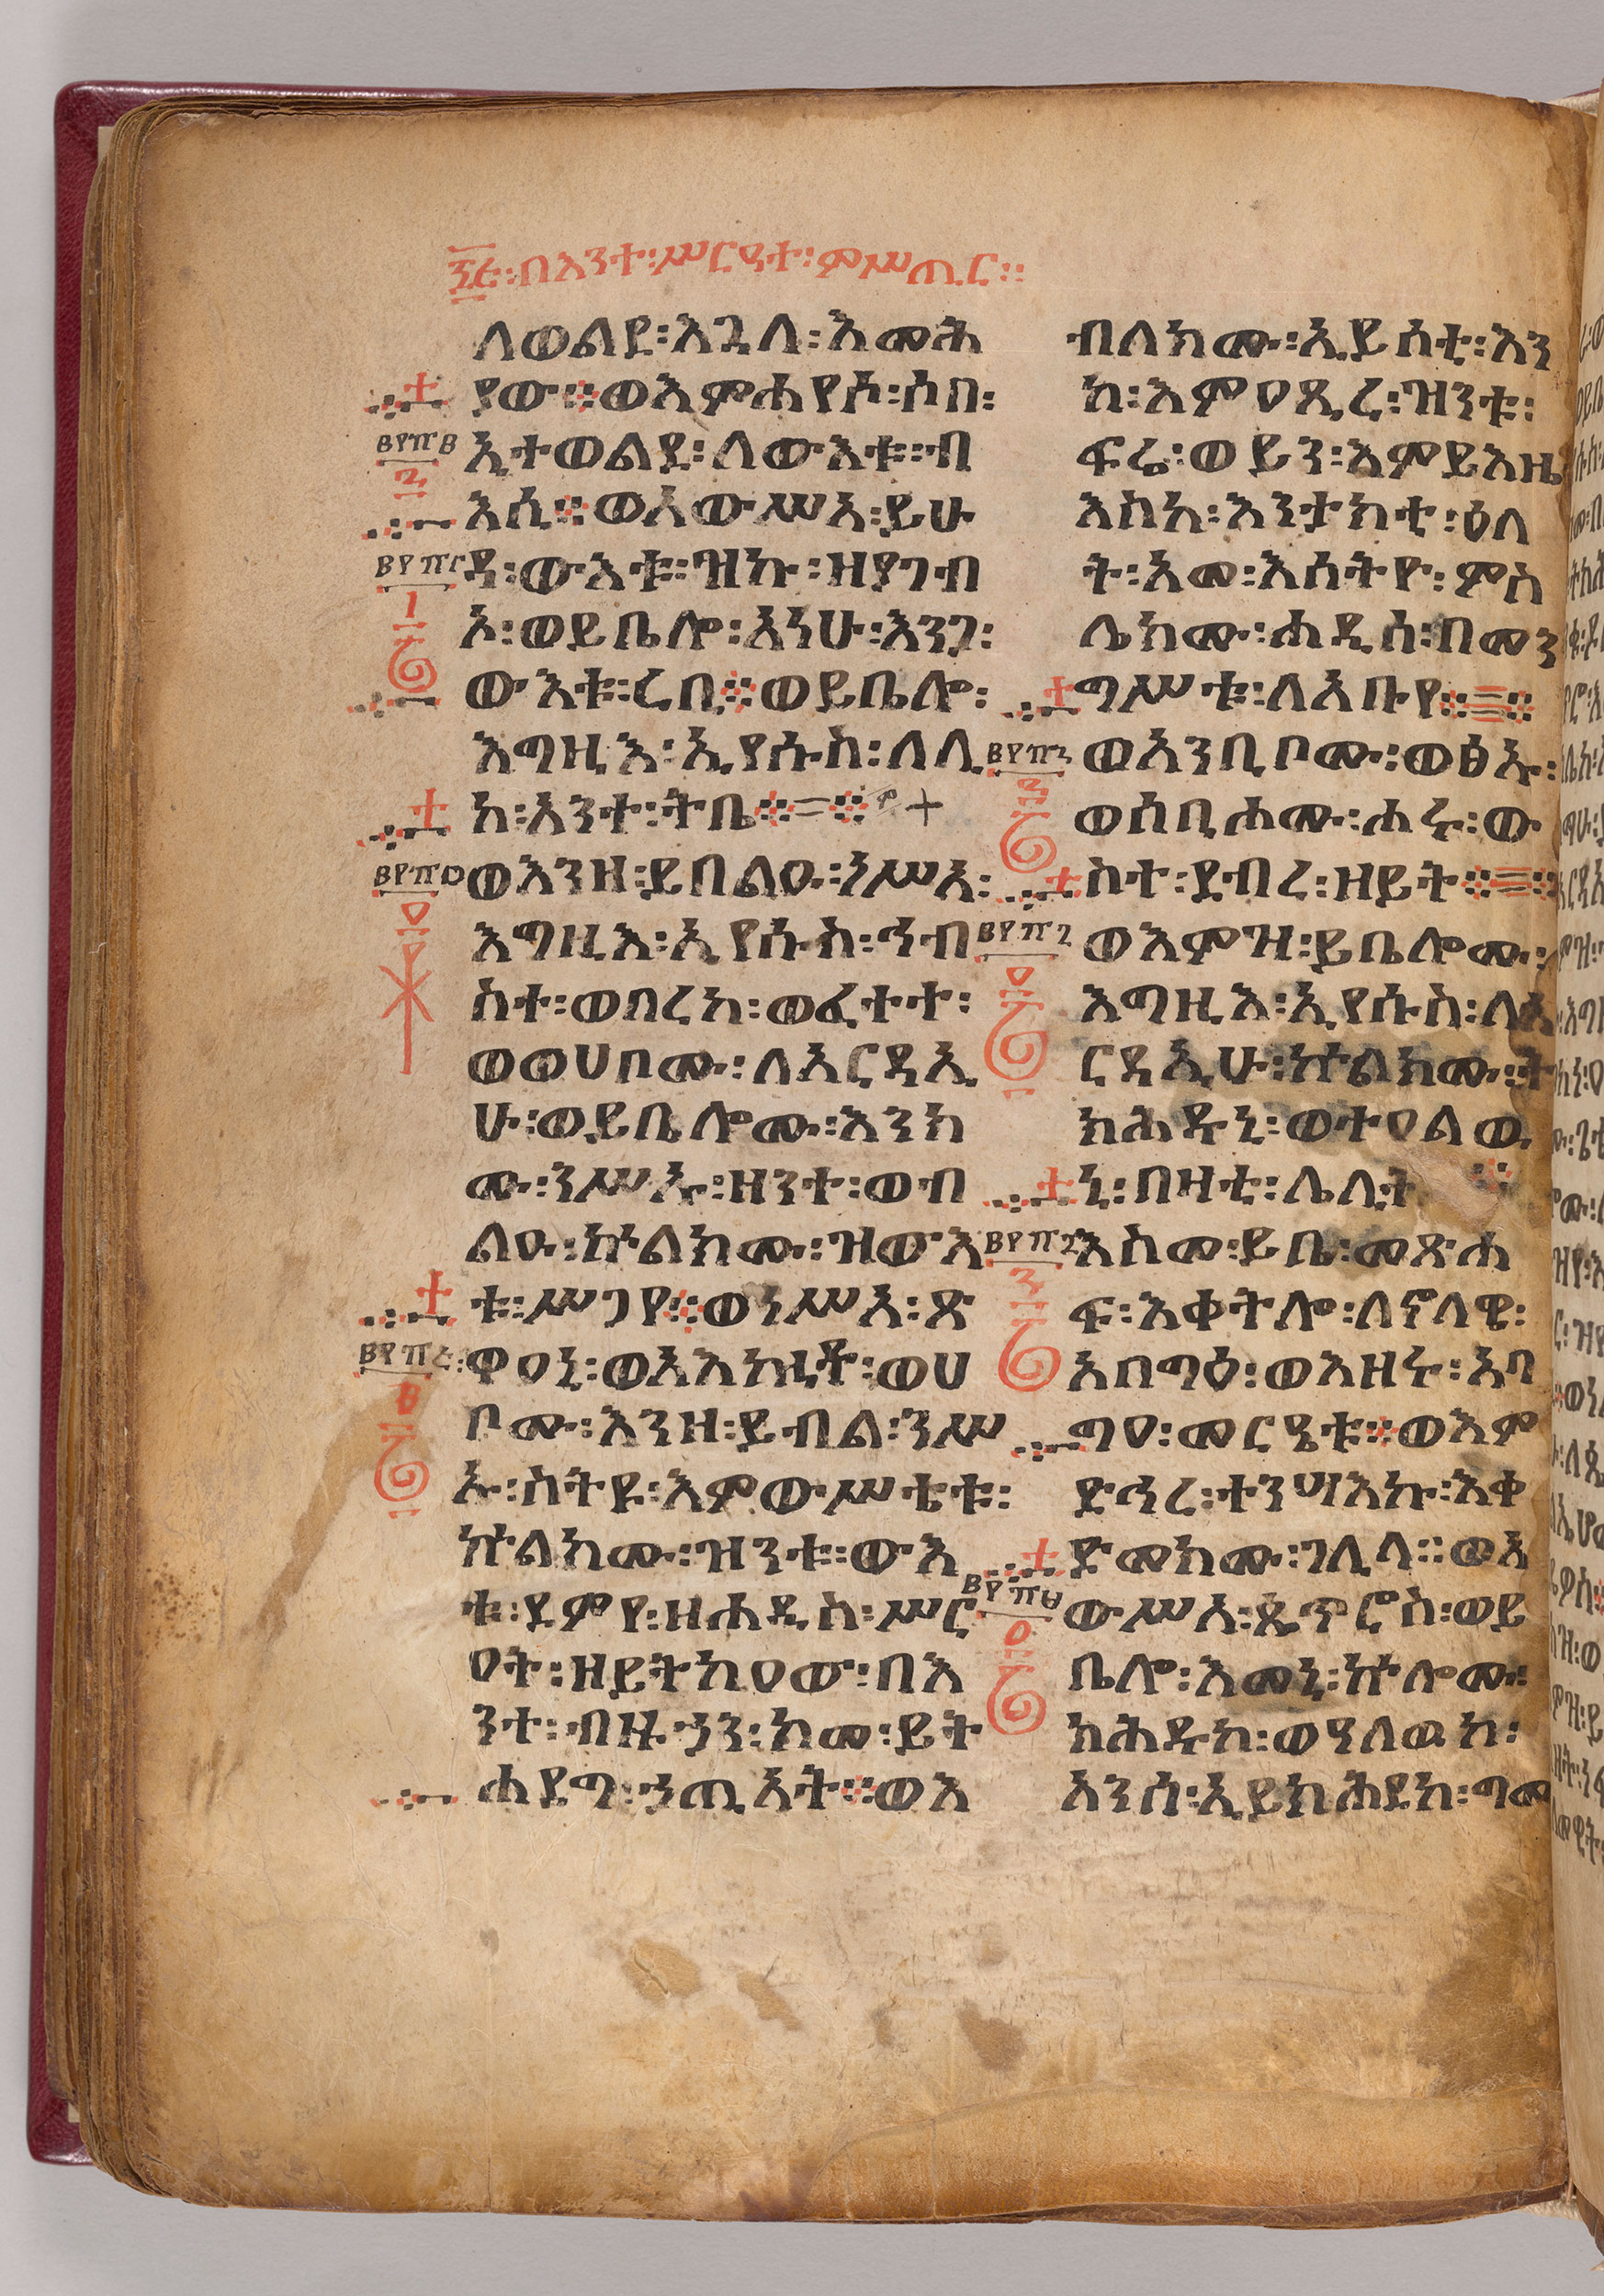 ፷፭፡በእንተ፡ሥርዓተ፡ምሥጢር፡፡
ለወልደ፡እጓለ፡እመሕ
ያው፨ወእምሐየሶ፡ሶበ፡
ኢተወልደ፡ለውእቱ፡ብ
እሲ፨ወአውሥአ፡ይሁ
ዳ፡ውእቱ፡ዝኩ፡ዘያገብ
ኦ፡ወይቤሎ፡አነሁ፡እንጋ፡
ውእቱ፡ረቢ፨ወይቤሎ፡
እግዚእ፡ኢየሱስ፡ለሊ
ከ፡አንተ፡ትቤ፨=፨
ወእንዘ፡ይበልዑ፡ነሥአ፡
እግዚእ፡ኢየሱስ፡ኅብ
ስተ፡ወባረከ፡ወፈተተ፡
ወወሀቦሙ፡ለአርዳኢ
ሁ፡ወይቤሎሙ፡እንክ
ሙ፡ንሥኡ፡ዘንተ፡ወብ
ልዑ፡ኵልክሙ፡ዝውእ
ቱ፡ሥጋየ፨ወነሥአ፡ጽ
ዋዐኒ፡ወአእኰቶ፡ወሀ
ቦሙ፡እንዘ፡ይብል፡ንሥ
ኡ፡ስትዩ፡እምውሥቴቱ፡
ኵልክሙ፡ዝንቱ፡ውእ
ቱ፡ደምየ፡ዘሐዲስ፡ሥር
ዐት፡ዘይትከዐው፡በእ
ንተ፡ብዙኃን፡ከመ፡ይት
ሐደግ፡ኃጢአት፨ወእ
ብለክሙ፡ኢይሰቲ፡እን
ከ፡እምዐጺረ፡ዝንቱ፡
ፍሬ፡ወይን፡እምይእዜ
እስከ፡እንታክቲ፡ዕለ
ት፡አመ፡እሰትዮ፡ምስ
ሌክሙ፡ሐዲሰ፡በመን
ግሥቱ፡ለአቡየ፨=፨
ወአንቢቦሙ፡ወፅኡ፡
ወሰቢሖሙ፡ሖሩ፡ው
ስተ፡ደብረ፡ዘይት፨=፨
ወእምዝ፡ይቤሎሙ፡
እግዚእ፡ኢየሱስ፡ለአ
ርዳኢሁ፡ኵልክሙ፡ት
ክሕዱኒ፡ወተዐልወ
ኒ፡በዛቲ፡ሌሊት
እስመ፡ይቤ፡መጽሐ
ፍ፡እቀትሎ፡ለኖላዊ፡
አባግዕ፡ወእዘሩ፡አባ
ግዐ፡መርዔቱ፨ወእም
ድኅረ፡ተንሣእኩ፡እቀ
ድመክሙ፡ገሊላ፡፡ወአ
ውሥአ፡ጴጥሮስ፡ወይ
ቤሎ፡እመኒ፡ኵሎሙ፡
ክሕዱከ፡ወዓለዉከ፡
አንሰ፡ኢይክሕደከ፡ግሙ